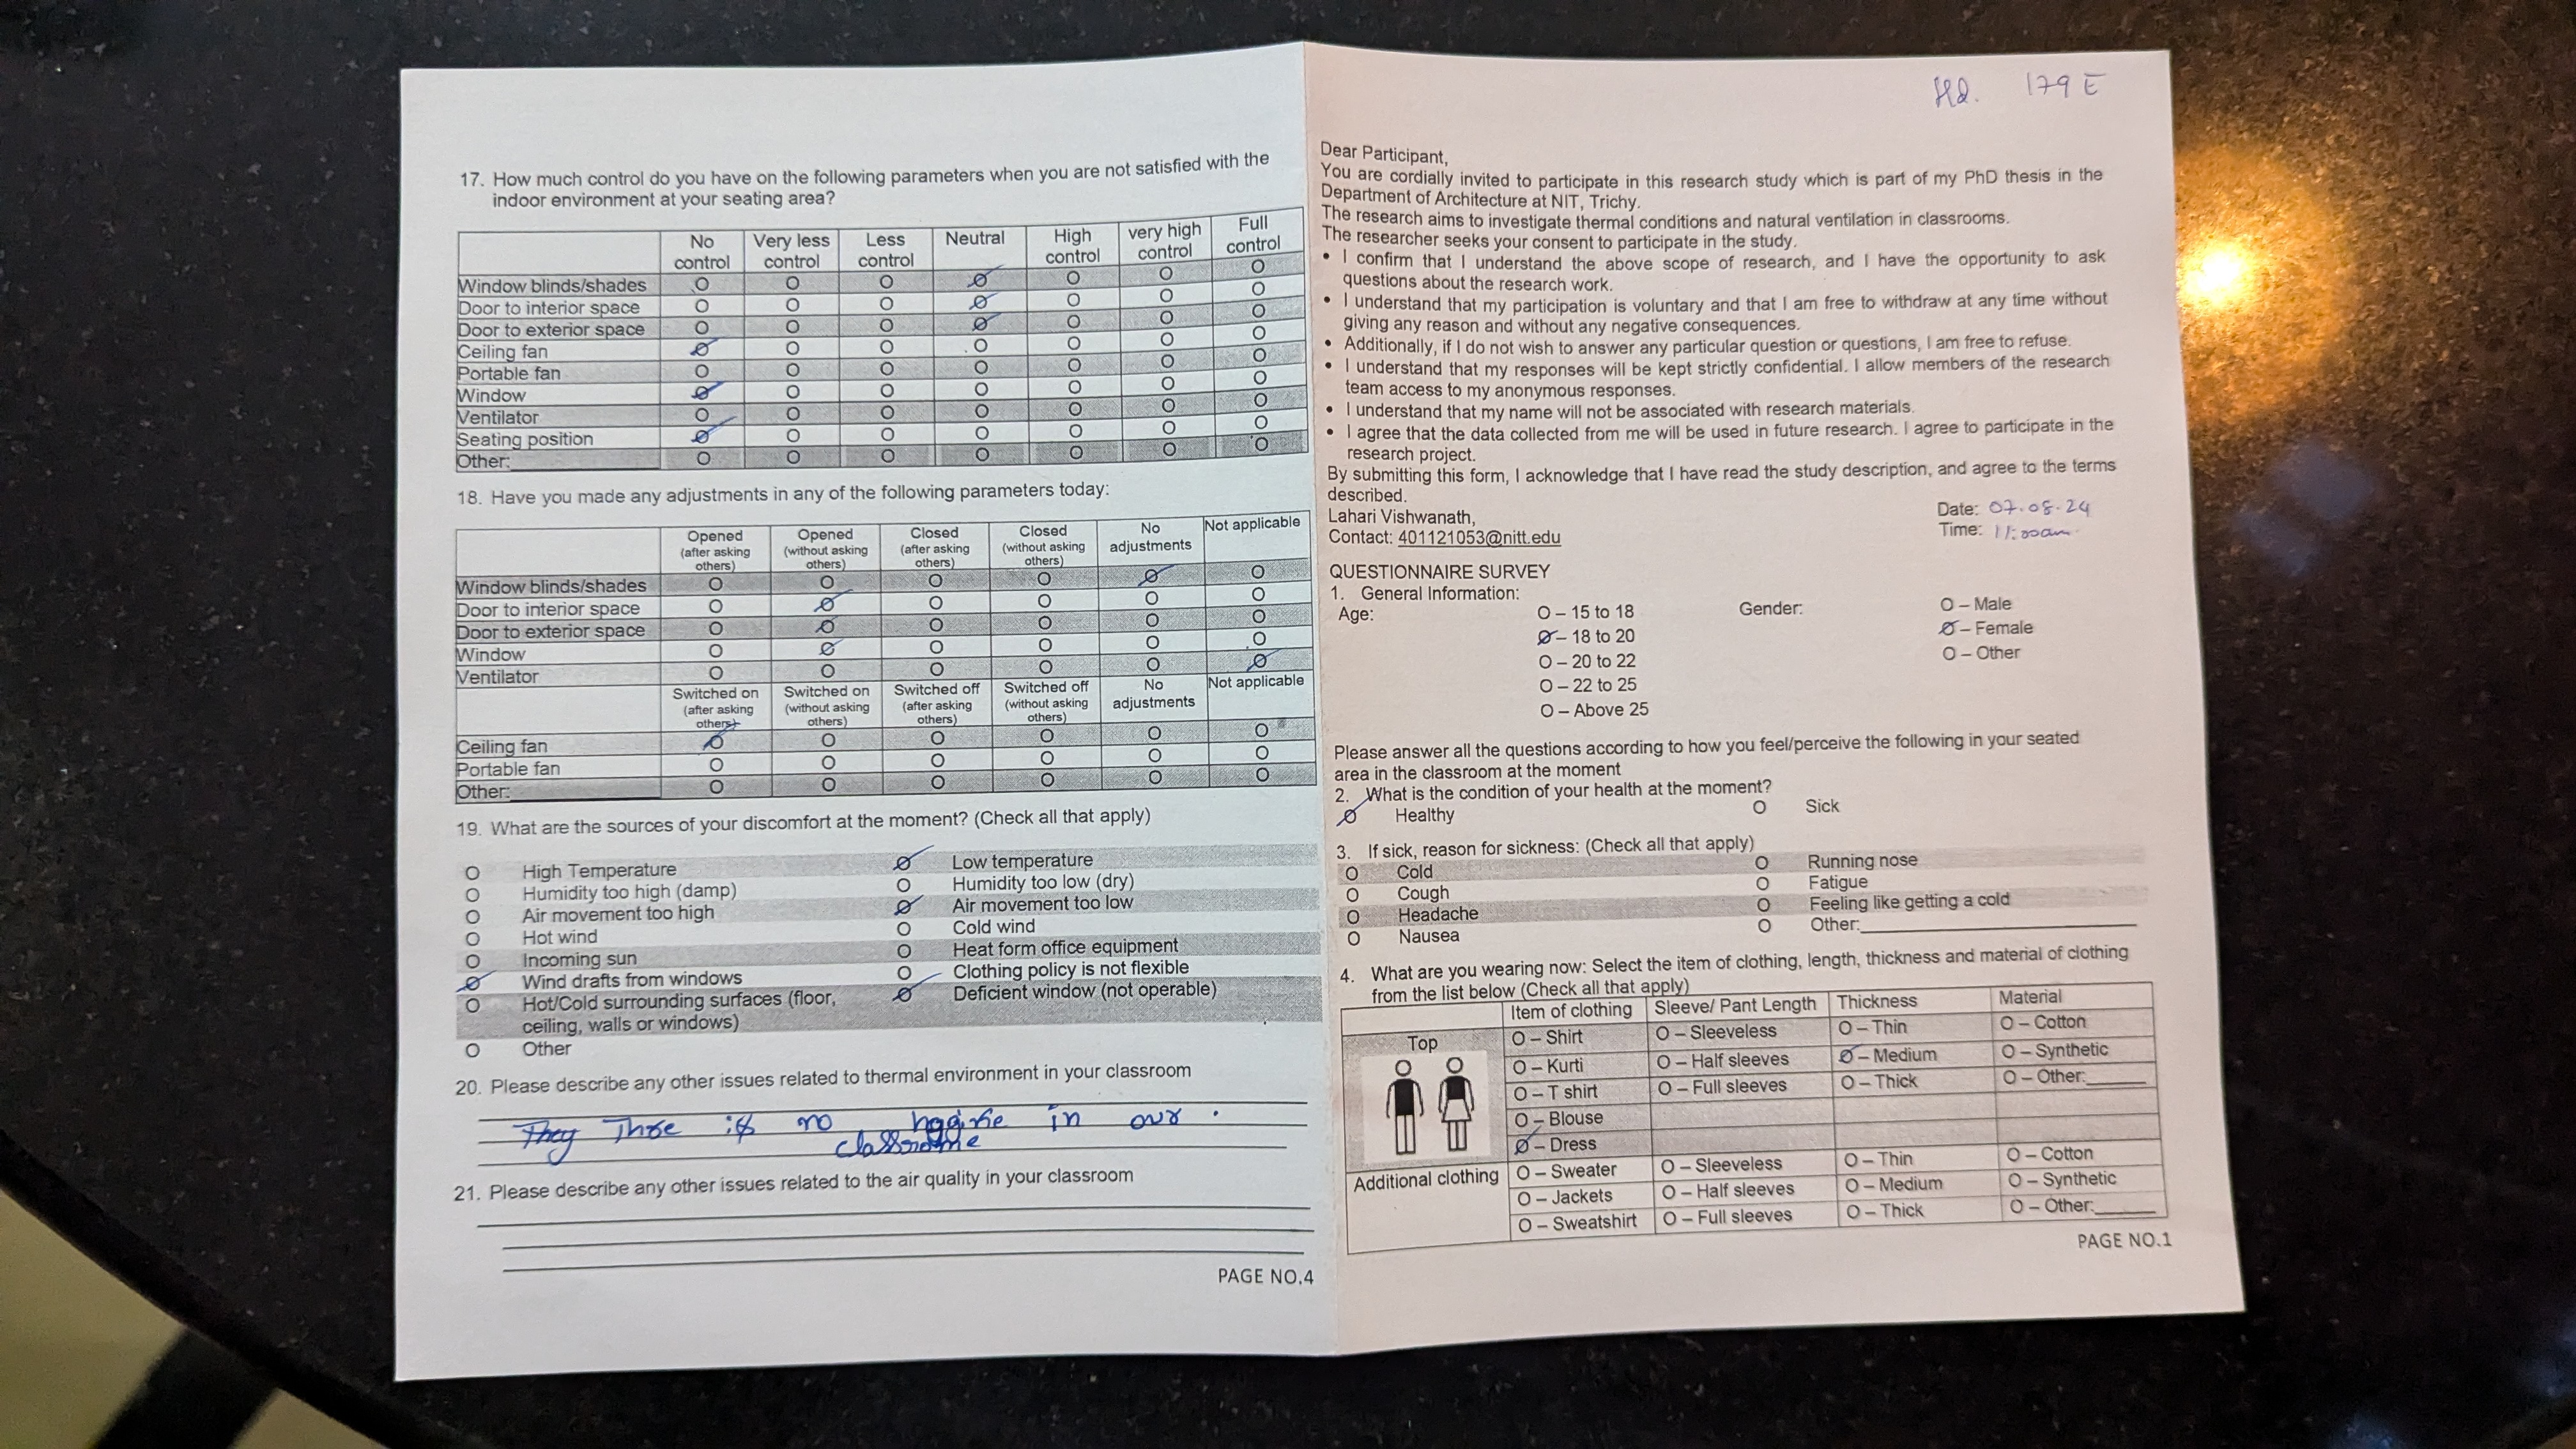 17. How much control do you have on the following parameters when you are not satisfied with the
indoor environment at your seating area?
No control Very less control Less control Neutral High control very high control Full control
Window blinds/shades O O O O O O O
Door to interior space O O O O O O O
Door to exterior space O O O O O O O
Ceiling fan O O O O O O O
Portable fan O O O O O O O
Window O O O O O O O
Ventilator O O O O O O O
Seating position O O O O O O O
Other: O O O O O O O
18. Have you made any adjustments in any of the following parameters today:
Opened (after asking others) Opened (without asking others) Closed (after asking others) Closed (without asking others) No adjustments Not applicable
Window blinds/shades O O O O O O
Door to interior space O O O O O O
Door to exterior space O O O O O O
Window O O O O O O
Ventilator O O O O O O
Switched on (after asking others) Switched on (without asking others) Switched off (after asking others) Switched off (without asking others) No adjustments Not applicable
Ceiling fan O O O O O O
Portable fan O O O O O O
Other: O O O O O O
19. What are the sources of your discomfort at the moment? (Check all that apply)
O High Temperature O Low temperature
O Humidity too high (damp) O Humidity too low (dry)
O Air movement too high O Air movement too low
O Hot wind O Cold wind
O Incoming sun O Heat form office equipment
O Wind drafts from windows O Clothing policy is not flexible
O Hot/Cold surrounding surfaces (floor, O Deficient window (not operable)
ceiling, walls or windows)
O Other
20. Please describe any other issues related to thermal environment in your classroom
They is no in our
21. Please describe any other issues related to the air quality in your classroom
PAGE NO.4
179 E
Dear Participant,
You are cordially invited to participate in this research study which is part of my PhD thesis in the
Department of Architecture at NIT, Trichy.
The research aims to investigate thermal conditions and natural ventilation in classrooms.
The researcher seeks your consent to participate in the study.
• I confirm that I understand the above scope of research, and I have the opportunity to ask
questions about the research work.
• I understand that my participation is voluntary and that I am free to withdraw at any time without
giving any reason and without any negative consequences.
• Additionally, if I do not wish to answer any particular question or questions, I am free to refuse.
• I understand that my responses will be kept strictly confidential. I allow members of the research
team access to my anonymous responses.
• I understand that my name will not be associated with research materials.
• I agree that the data collected from me will be used in future research. I agree to participate in the
research project.
By submitting this form, I acknowledge that I have read the study description, and agree to the terms
described.
Lahari Vishwanath,
Contact: 401121053@nitt.edu
Date: 07.08.24
Time: 11:00am
QUESTIONNAIRE SURVEY
1. General Information:
Age: O – 15 to 18 Gender: O – Male
O – 18 to 20 O – Female
O – 20 to 22 O – Other
O – 22 to 25
O – Above 25
Please answer all the questions according to how you feel/perceive the following in your seated
area in the classroom at the moment
2. What is the condition of your health at the moment?
O Healthy O Sick
3. If sick, reason for sickness: (Check all that apply)
O Cold O Running nose
O Cough O Fatigue
O Headache O Feeling like getting a cold
O Nausea O Other:
4. What are you wearing now: Select the item of clothing, length, thickness and material of clothing
from the list below (Check all that apply)
Item of clothing Sleeve/ Pant Length Thickness Material
Top O – Shirt O – Sleeveless O – Thin O – Cotton
O – Kurti O – Half sleeves O – Medium O – Synthetic
O – T shirt O – Full sleeves O – Thick O – Other:
O – Blouse
O – Dress
Additional clothing O – Sweater O – Sleeveless O – Thin O – Cotton
O – Jackets O – Half sleeves O – Medium O – Synthetic
O – Sweatshirt O – Full sleeves O – Thick O – Other:
PAGE NO.1